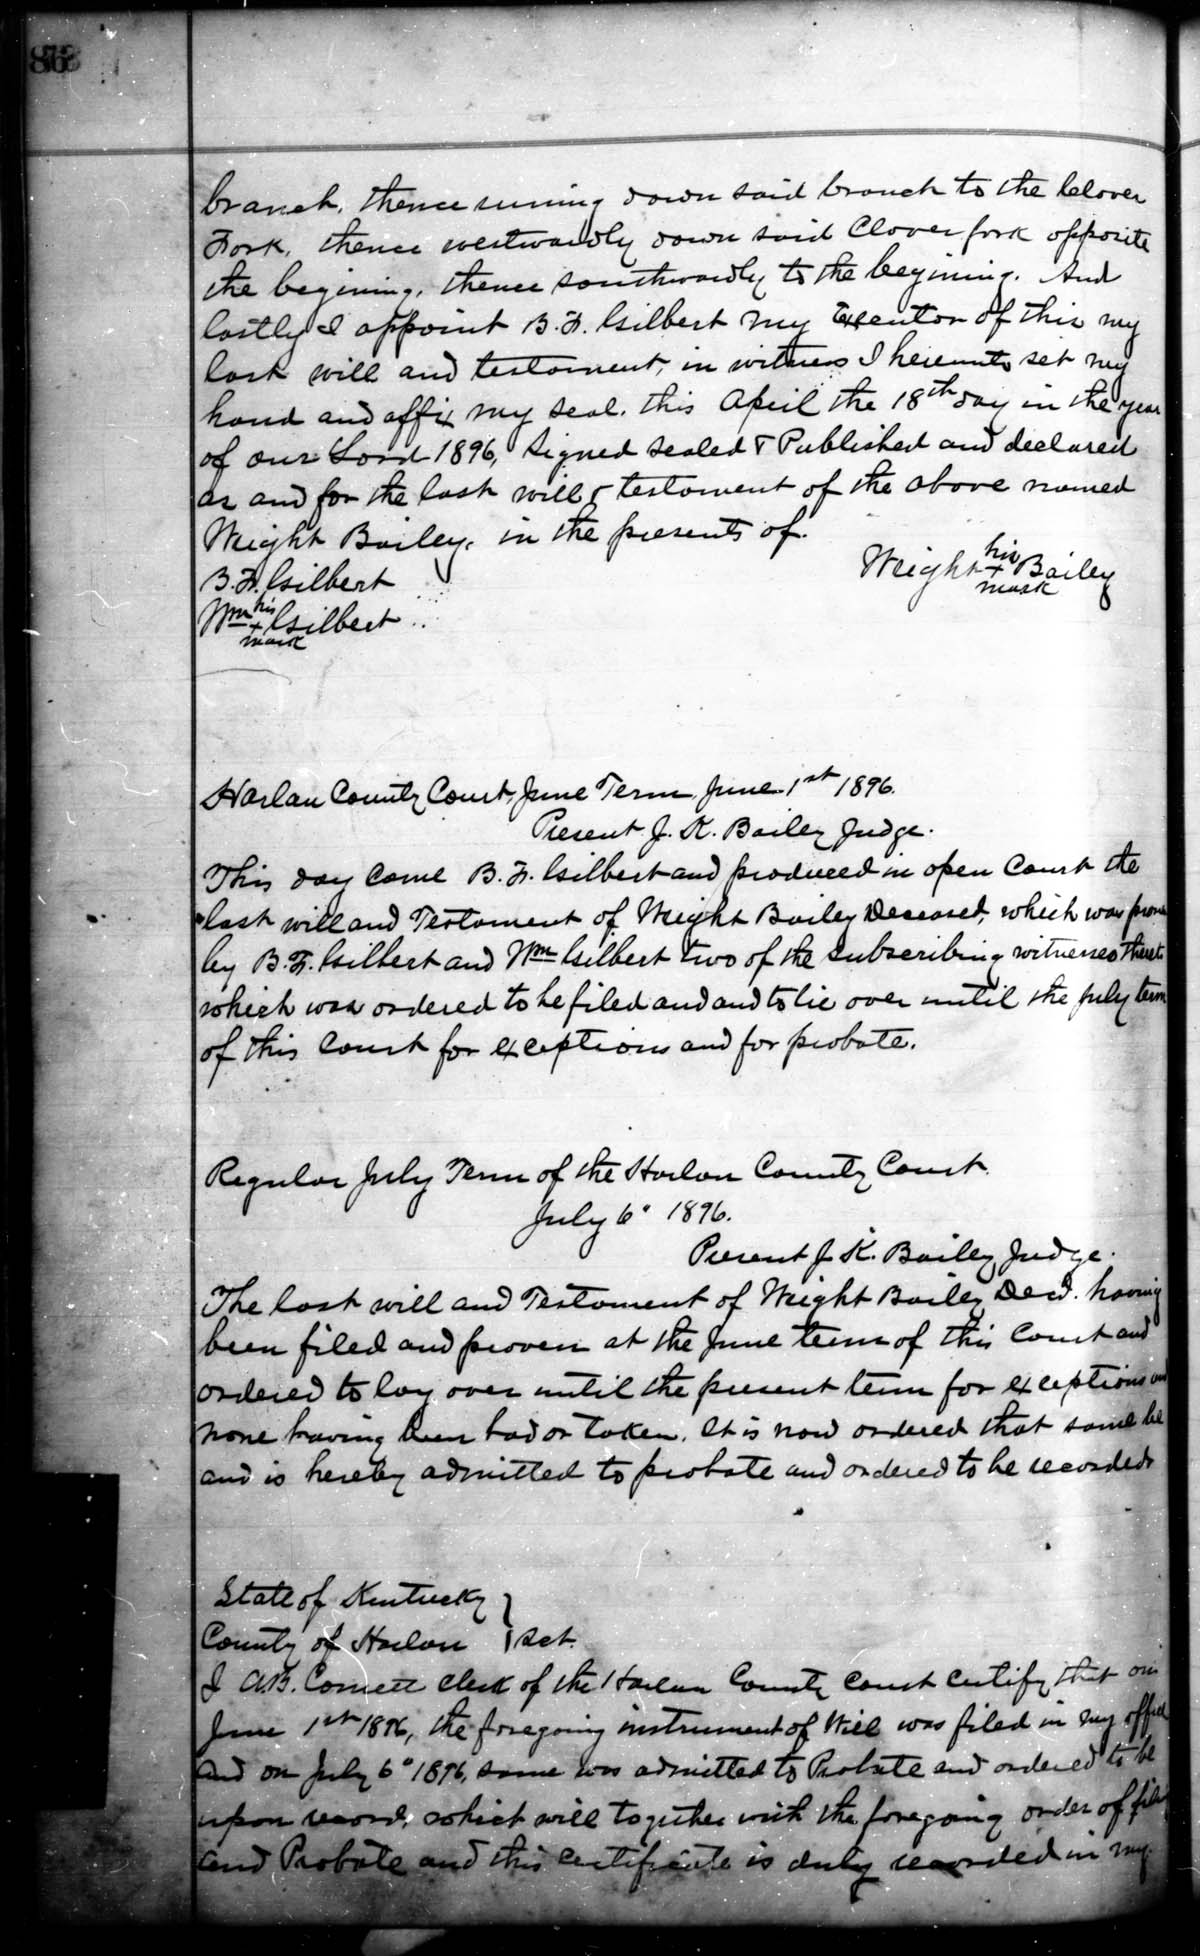 branch, thence runing down said branch to the Clover
Fork, thence westwardly down said Clover fork opposite
the begining, thence southwardly to the begining. And
lastly I appoint B. F. Gilbert my Executor of this my
last will and testament, in witness I hereunto set my
hand and affix my seal. this April the 18th day in the year
of our Lord 1896, Signed sealed & Published and declared
as and for the last will & testament of the above named
Weight Bailey, in the presents of.
Weight his x mark Bailey
B. F. Gilbert
Wm his x mark Gilbert
Harlan County Court, June Term, June 1st 1896.
Present J. K. Bailey Judge.
This day came B. F. Gilbert and produced in open Court the
last will and Testament of Weight Bailey Deceased, which was
by B. F. Gilbert and Wm Gilbert two of the subscribing witnesses thereto
which was ordered to be filed and and to lie over until the July term
of this Court for exceptions and for probate.
Regular July Term of the Harlan County Court.
July 6" 1896.
Present J. K. Bailey Judge.
The last will and Testament of Weight Bailey Decd. having
been filed and proven at the June term of this Court and
ordered to lay over until the present term for exceptions and
none having been had or taken. It is now ordered that same be
and is hereby admitted to probate and ordered to be recorded
State of Kentucky }
County of Harlan } Sct.
I A.B. Cornett clerk of the Harlan County Court certify that on
June 1st 1896, the foregoing instrument of Will was filed in my office
and on July 6" 1896, same was admitted to Probate and ordered to be
upon record, which will together with the foregoing order of
and Probate and this certificate is duly recorded in my